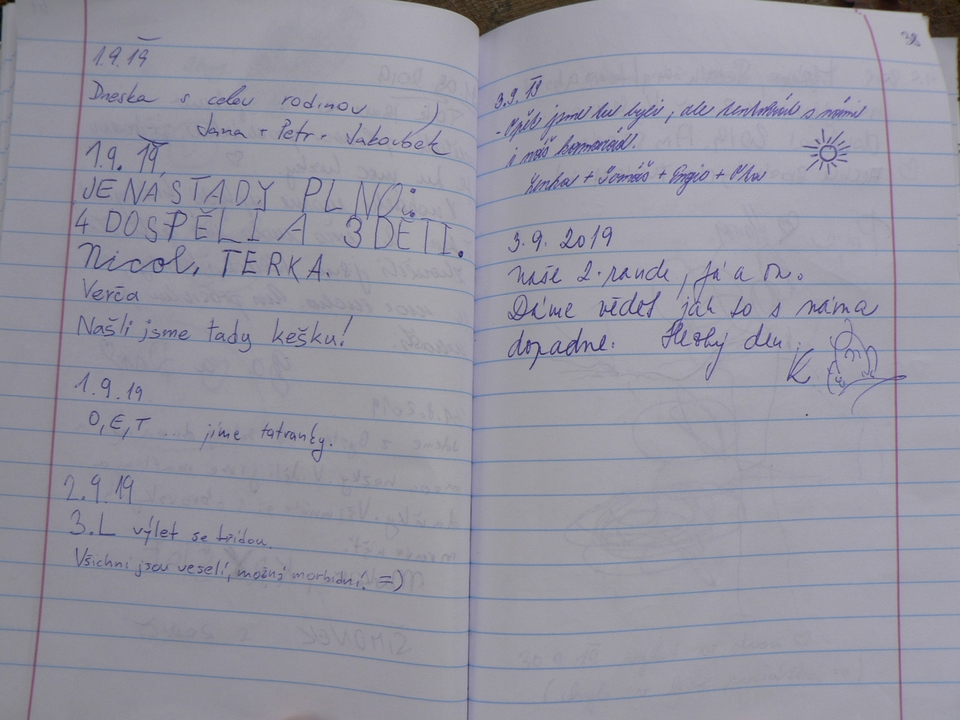 1.9.19
Dneska s celou rodinou
Jana + Petr + Jakoubek
1.9.19.
JE NÁS TADY PLNO:
4 DOSPĚLÍ A 3 DĚTI.
Nicol, TERKA.
Verča
Našli jsme tady kešku!
1.9.19
O, E, T ... jíme tatranky.
2.9.19
3.L výlet se třídou.
Všichni jsou veselí, možná morbidní! =)
38
3.9.19
- Opět jsme tu byli, ale tentokrát s námi
i náš kamarád.
+ Tomáš +
3.9.2019
Naše 2. rande, já a on.
Dáme vědět jak to s náma
dopadne. Hezký den.
K